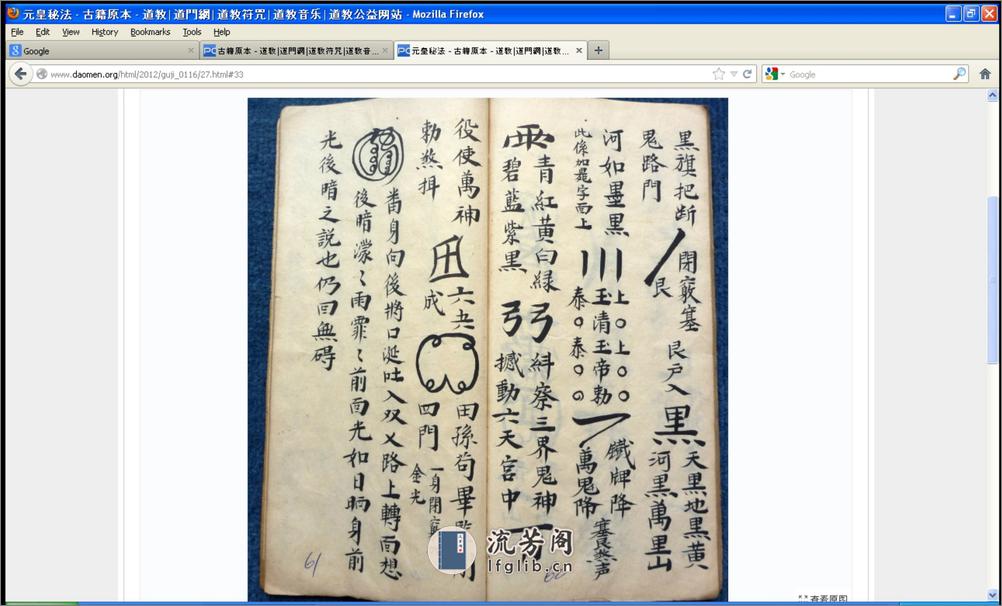 元皇秘法 - 古籍原本 - 道教|道門網|道教符咒|道教音乐|道教公益网站 - Mozilla Firefox
File Edit View History Bookmarks Tools Help
Google
古籍原本 - 道教|道門網|道教符咒|道教音...
元皇秘法 - 古籍原本 - 道教|道門網|道教...
www.daomen.org/html/2012/guji_0116/27.html#33
Google
黒旗把断
鬼路門
閉竅塞
艮
艮戶入
黑
天黒地黒黄
河黒萬里山
河如墨黑
此係如是字面上
上○上○○
玉清玉帝勅
泰○泰○○
鐵牌降
萬鬼降
塞艮煞声
雨
青紅黄白緑
碧藍紫黑
弓弓
糾察三界鬼神
撼動六天宫中
役使萬神
勅煞揖
六
成
田孫苟畢
四門
一身閉竅
金光
畨身向後將口涎吐入双乂路上轉面想
後暗濛〻雨霏〻前面光如日晒身前
光後暗之説也仍回無碍
61
流芳阁
lfglib.cn
查看原图